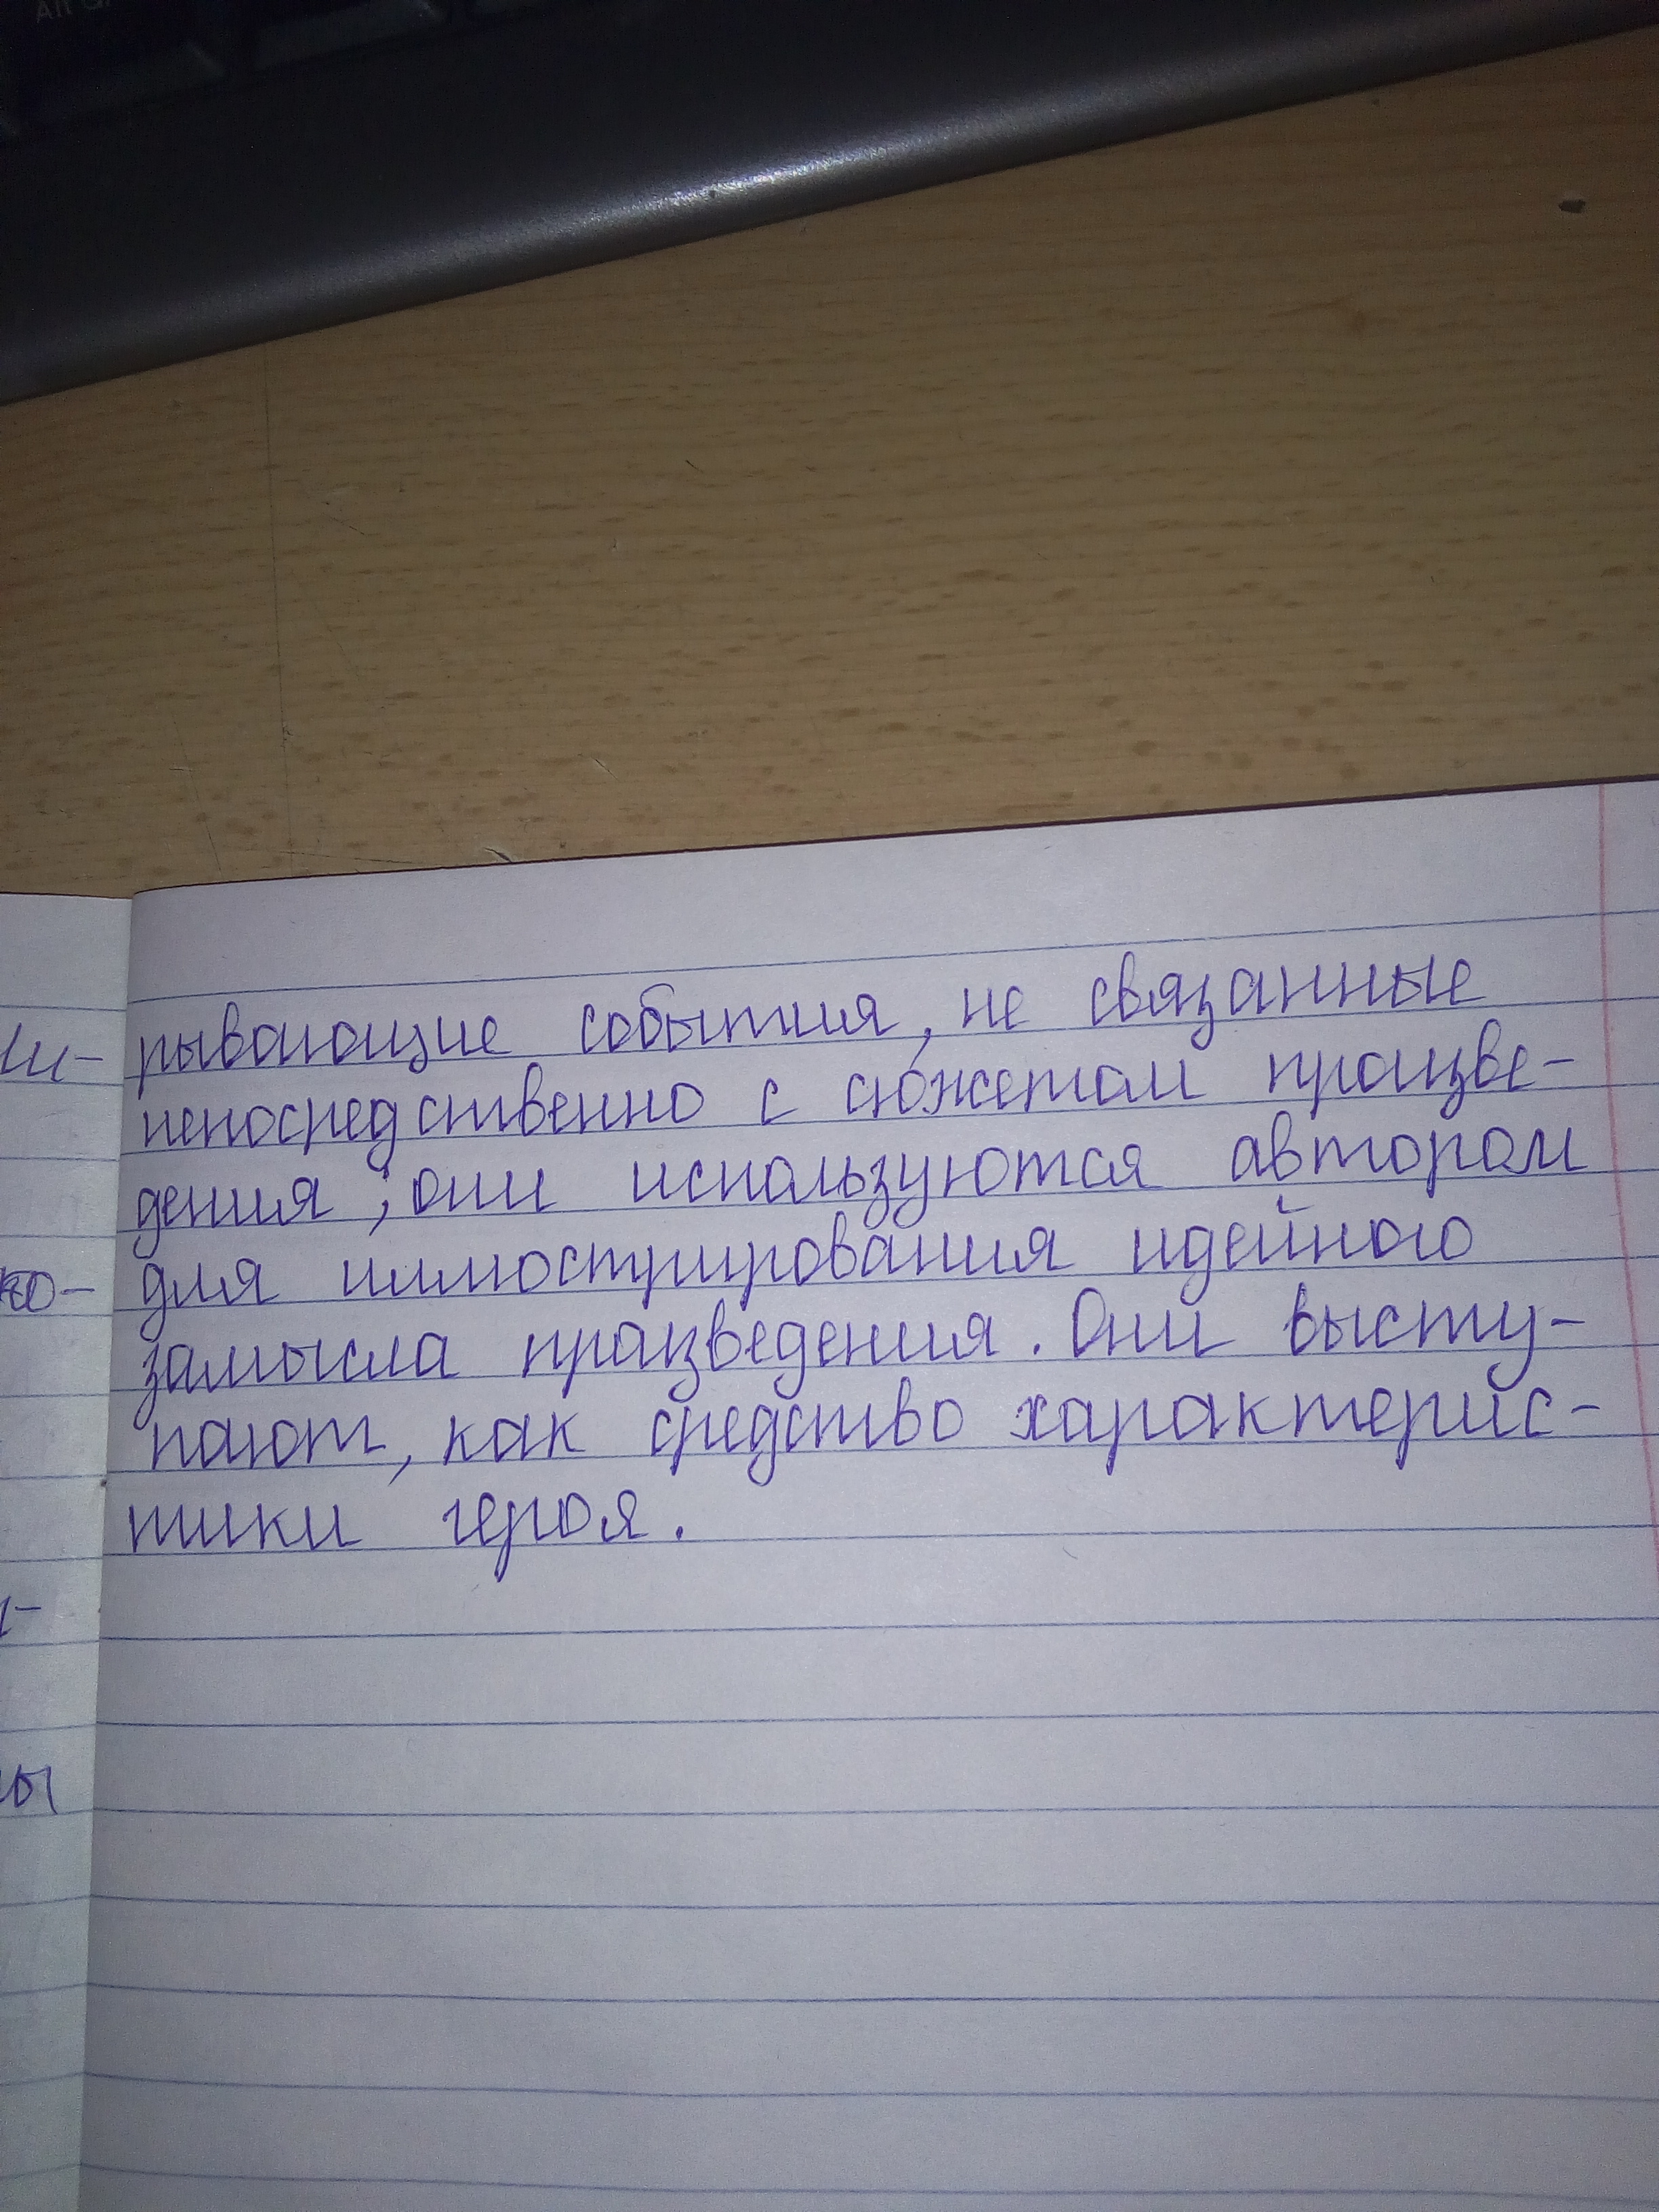 рывающие события, не связанные
непосредственно с сюжетом произве-
дения; они используются автором
для иллюстрирования идейного
замысла произведения. Они высту-
пают, как средство характерис-
тики героя.